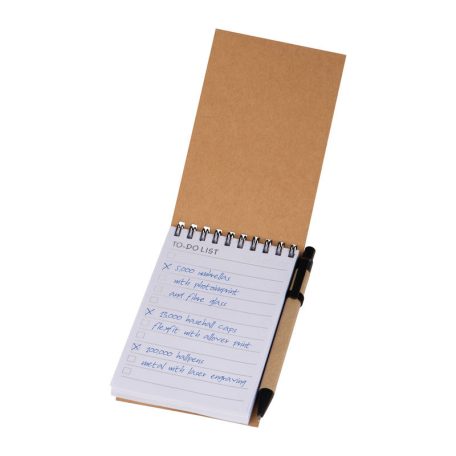 TO-DO LIST
5.000 umbrellas
with photoimprint
and fibre glass
15.000 baseball caps
flexfit with allover print
100.000 ballpens
metal with laser engraving